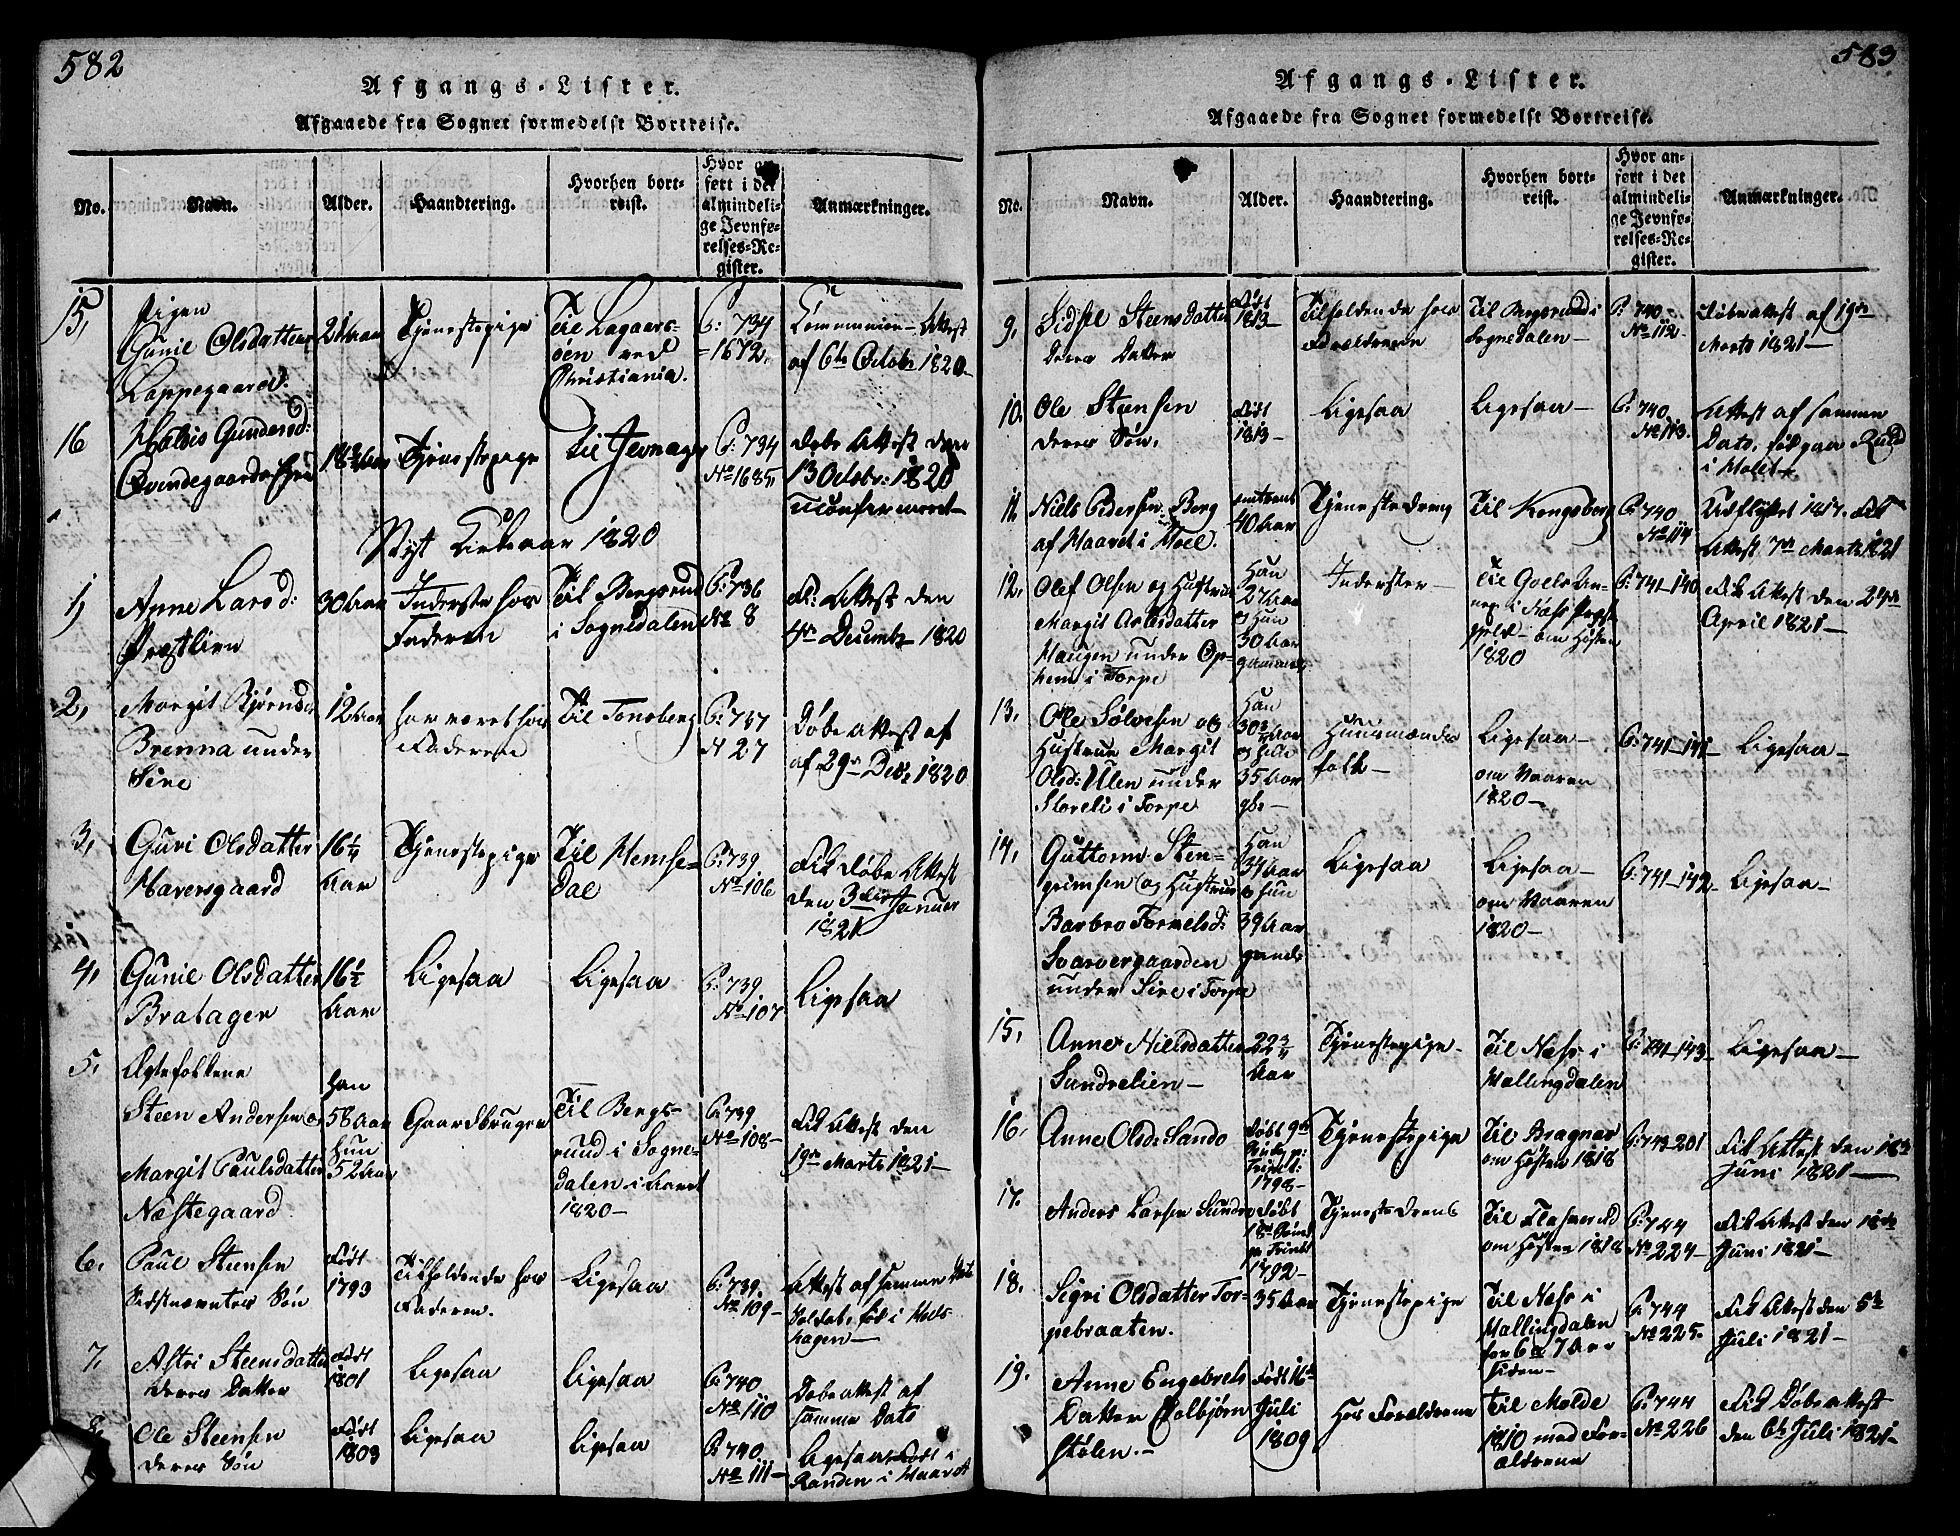 582
Afgangs-Lister.
Afgaaede fra Sognet formedelst Bortreise.
No. Navn. Alder. Haandtering. Hvorhen bortreist. Hvor anført i det almindelige Jevnførelses-Register. Anmærkninger.
15, Pigen Gunil Olsdatter Loppegaard. 21 Aar Tjenestepige Til Lagaersøen ved Christiania. P: 734 1672. Communion-Attest af 6te Octobr 1820
16 Gunders d: 18 Aar Tjenestepige til Jevnager P: 734 No 1685, Døbe Attest den 13 Octobr: 1820
Nyt Kirkeaar 1820
1, Anne Lars d: Præstlien 30 Aar Inderste hos Faderen Til Bergsrud i Sognedalen P: 736 No 8 F: Attest den 4de Decembr 1820
2, Margit Bjørnsd Brenna under Sire 12 Aar har været hos Faderen Til Tonsberg P: 737 N 27 Døbeattest af 29de Decbr 1820
3, Guri Olsdatter Haversgaard 16¼ Aar Tjenestepige Til Hemsedal P: 739 No 106 Fik Døbe Attest den 3die Januar 1821
4, Gunil Olsdatter Bratager 16½ Aar Ligesaa Ligesaa P: 739 No 107 Ligesaa
5, Ægtefolkene Steen Andersen og Margit Paulsdatter Næstegaard Han 58 Aar Hun 52 Aar Gaardbruger Til Bergsrud i Sognedalen i Aaret 1820 P: 739 No 108 Fik Attest den 19de Marts 1821
6, Paul Steensen Sidstnævntes Søn Født 1793 Tilholdende hos Faderen. Ligesaa P: 739. No 109 Attest af samme Dato
7, Astri Steensdatter deres Datter Født 1801 Ligesaa Ligesaa P: 740 No 110 Døbeattest af samme Dato
8, Ole Steensen deres Søn Født 1803 Ligesaa Ligesaa P: 740 No 111 Ligesaa
583
Afgangs-Lister.
Afgaaede fra Sognet formedelst Bortreise.
No. Navn. Alder. Haandtering. Hvorhen bortreist. Hvor anført i det almindelige Jevnførelses-Register. Anmærkninger.
9, Sidsel Steensdatter deres Datter Født 1813 Tilholdende hos Forældrene Til Bergsrud i Sognedalen P: 740 No 112 Døbeattest af 19de Marts 1821
10, Ole Steensen deres Søn. Født 1813 Ligesaa Ligesaa P: 740 No 113. Attest af samme Dato,
11, Niels Pedersen Berg omtrent 40 Aar Tjenestedreng Til Kongsberg P: 740 No 114 Udflyttet 1817. Fik Attest 7de Marts 1821
12, Olef Olsen og Hustrue Margit Haugen under Ophem i Torpe Han 27 Aar og Hun 30 Aar gammel Inderster om Høsten 1820 P: 741-140 Fik Attest den 24de April 1821
13, Ole Sølvesen og Hustrue Margit Olsd: Ulen under Storeli i Torpe Han Aar og hun 35 Aar Huusmændsfolk Ligesaa om Vaaren 1820 P: 741-141 Ligesaa
14, Guttorm Stengrimsen og Hustrue Barbro Svarvergaarden under Sire i Torpe Han 34 Aar og Hun 39 Aar Ligesaa Ligesaa om Vaaren 1820 P: 741-142 Ligesaa
15, Anne Nielsdatter Sundrelien 22¾ Aar Tjenestepige Til Næss i Hallingdalen P: 741-143 Ligesaa
16, Anne Olsd: Sando Født 1798 Tjenestepige Til Bragnes om Høsten 1818 P: 743-201 Fik Attest den Juni 1821
17, Anders Larsen Sundre Født 1792 Tjenestedreng Til om Høsten 1818 P: 744 No 224 Fik Attest den Juni 1821
18, Sigri Olsdatter Torpebraaten. 35 Aar Tjenestepige Til Næss i Hallingdalen for 6 a 7 Aar siden P: 744 No 225. Fik Attest den 5te Juli 1821
19, Anne Engebrets Datter Kolbjørnstølen Født 16de Juli 1809 Hos Forældrene Til Molde 1810 med Forældrene P: 744 No 226 Fik Døbeattest den 6te Juli 1821